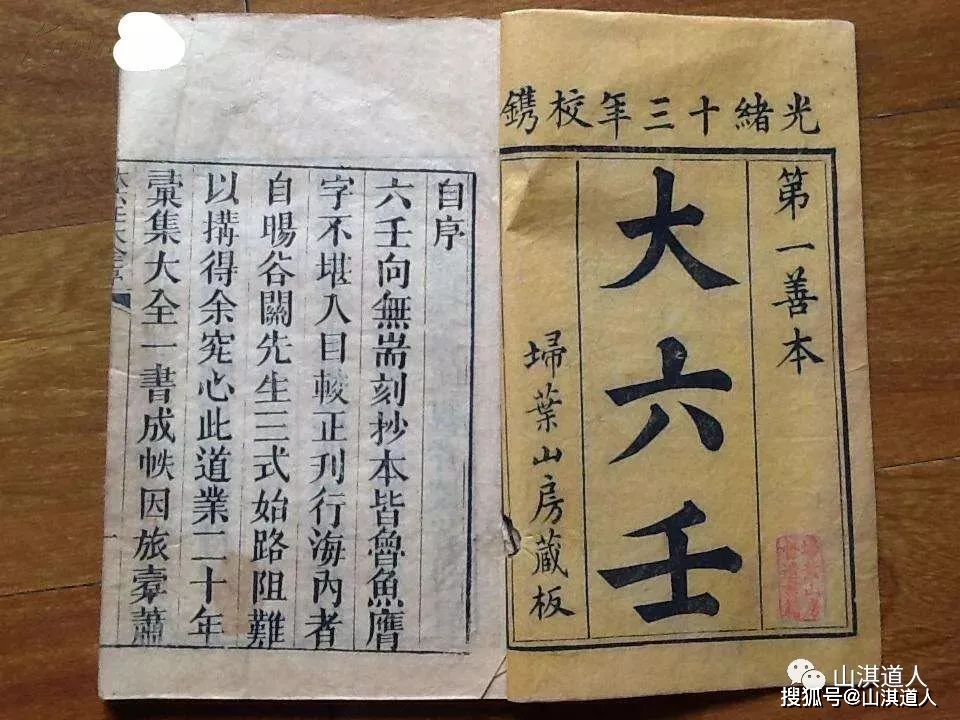 光緒十三年校鐫
第一善本
大六壬
埽葉山房藏板
自序
六壬向無耑刻抄本皆魯魚膺
字不堪入目較正刊行海內者
自暘谷關先生三式始路阻難
以搆得余究心此道業二十年
彚集大全一書成帙因旅橐蕭
山淇道人
搜狐号@山淇道人